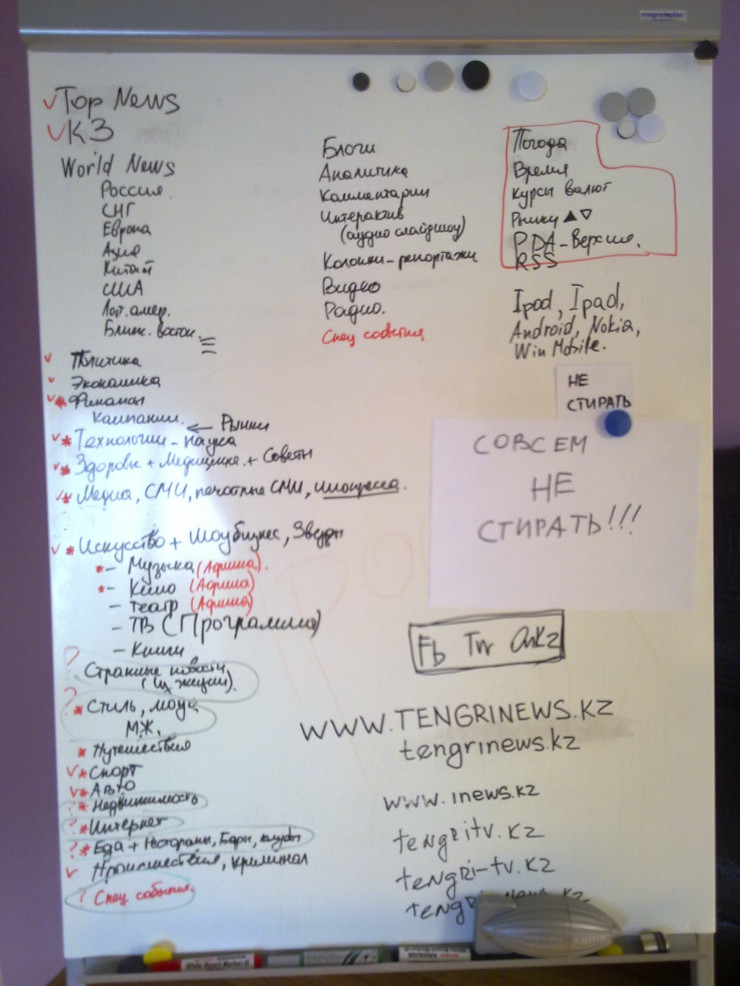 magnetoplan
Top News
КЗ
World News
Россия.
СНГ
Европа
Азия
Китай
США
Лат. амер.
Ближ. восток.
Политика
Экономика
Финансы
Кампании. ← Рынки
Технологии - наука
Здоровье + Медицина + Советы
Медиа, СМИ, печатные СМИ,
Искусство + Шоубизнес, Звезды
- Музыка (Афиша).
- Кино (Афиша)
- Театр (Афиша)
- ТВ (Программа)
- Книги
? Странные новости
(из жизни).
? Стиль, мода
МЖ.
Путешествия
Спорт
Авто
? Недвижимость
? Интернет
? Еда + Рестораны, Бары, клубы
Происшествия, криминал
? Спец события.
Блоги
Аналитика
Комментарии
Интерактив
(аудио слайдшоу)
Колонки-репортажи
Видео
Радио.
Спец события
Погода
Время
Курсы валют
Рынки ▲▽
PDA-Версия.
RSS
Ipod, Ipad,
Android, Nokia,
Win Mobile.
НЕ
СТИРАТЬ
СОВСЕМ
НЕ
СТИРАТЬ!!!
Fb Tw
WWW.TENGRINEWS.KZ
tengrinews.kz
www.inews.kz
tengritv.kz
tengri-tv.kz